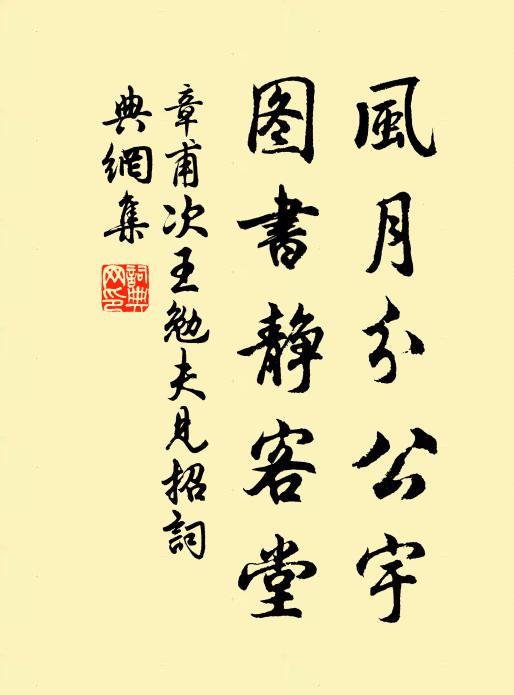 風月分公宇
图書静客堂
章甫次王勉夫見招詞
典網集
詞典
网印